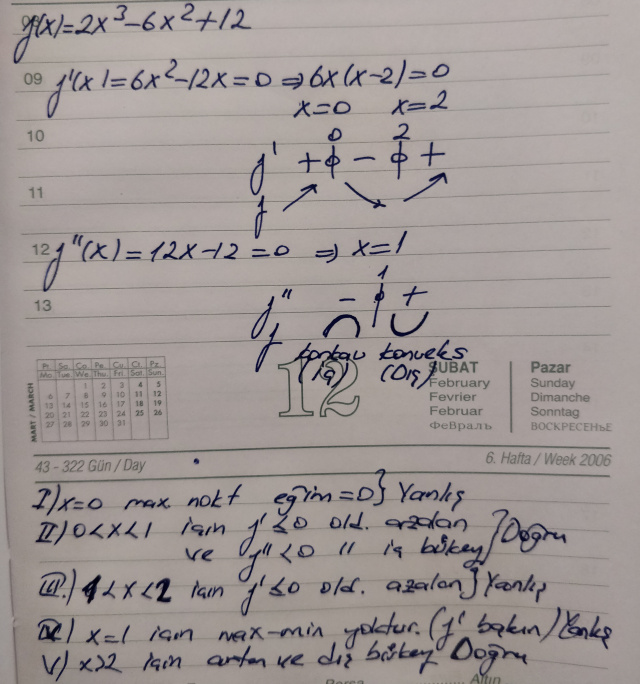 f(x)=2x³-6x²+12
09 f'(x)=6x²-12x=0 ⇒6x(x-2)=0
x=0 x=2
10
0 2
f' + ϕ - ϕ +
11
f
12 f''(x)=12x-12=0 ⇒ x=1
1
13
f'' - ϕ +
f
konkav konveks
(iç) (Dış)
MART / MARCH
Pt. Sa. Ça. Pe. Cu. Ct. Pz.
Mo. Tue. We. Thu. Fri. Sat. Sun.
1 2 3 4 5
6 7 8 9 10 11 12
13 14 15 16 17 18 19
20 21 22 23 24 25 26
27 28 29 30 31
12
ŞUBAT
February
Fevrier
Februar
Февраль
Pazar
Sunday
Dimanche
Sonntag
ВОСКРЕСЕНЬЕ
43 - 322 Gün / Day
6. Hafta / Week 2006
I) x=0 max nokt eğim=0} Yanlış
II) 0<x<1 için f'≤0 old. azalan
ve f''<0 " iç bükey} Doğru
III.) 1<x<2 için f'≤0 old. azalan} Yanlış
IV) x=1 için max-min yoktur. (f' bakın) Yanlış
V) x>2 için artan ve dış bükey Doğru